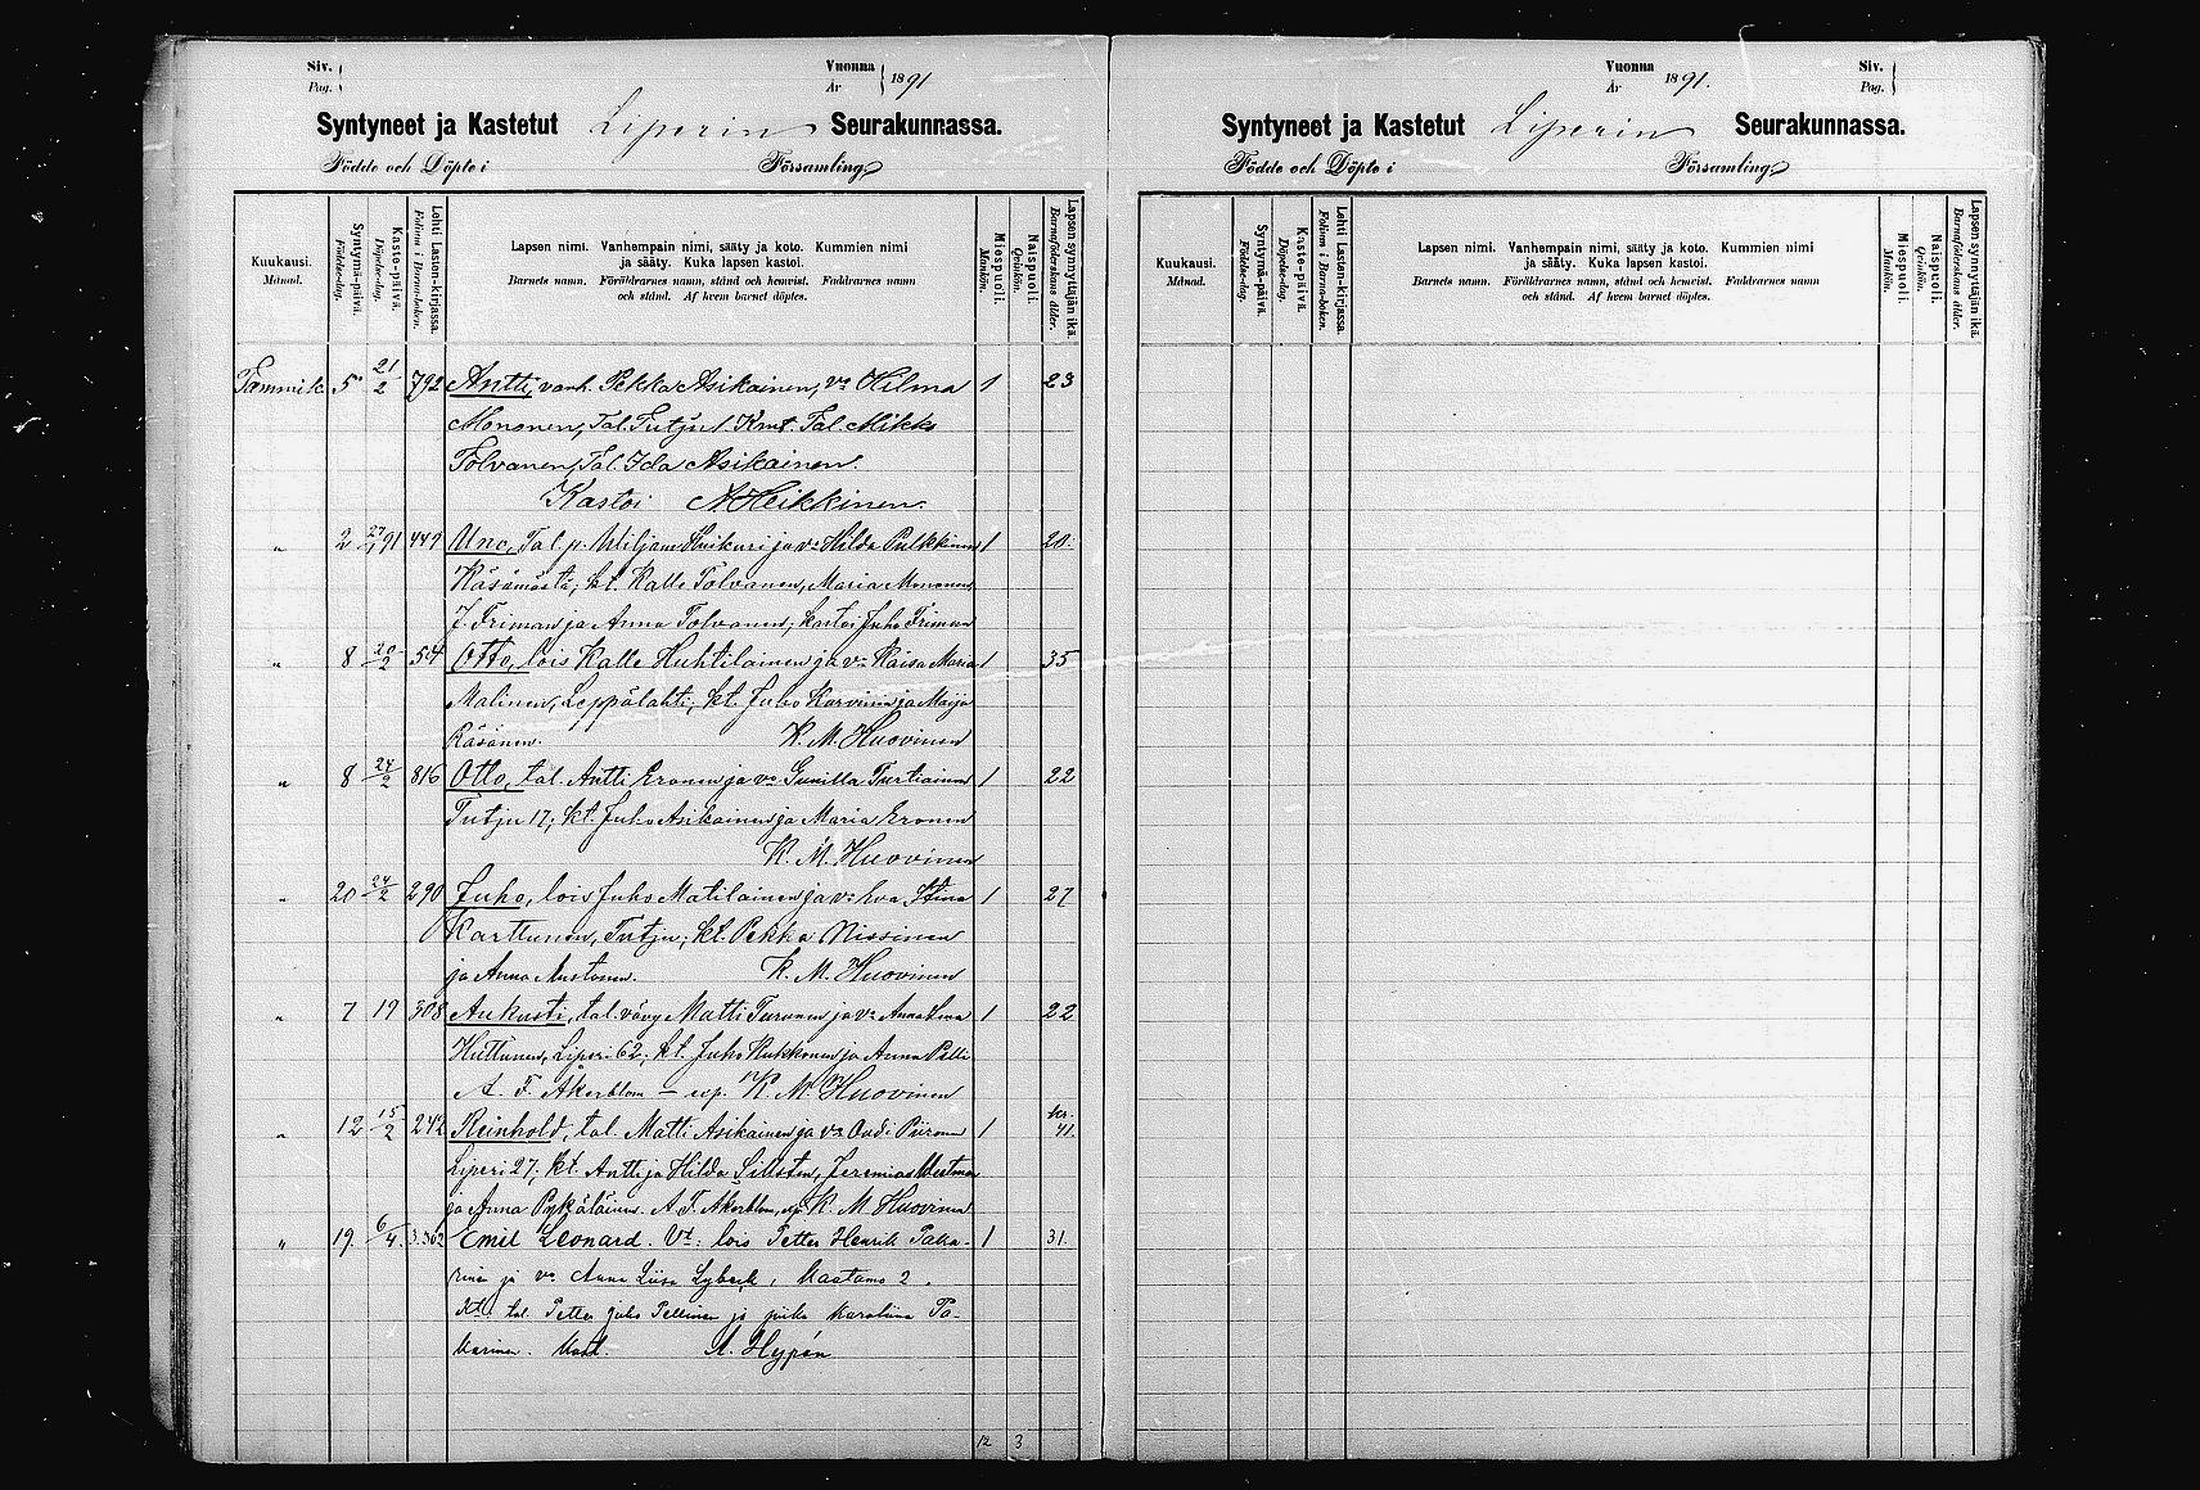 Siv.
Pag.
Vuonna
År
1891
Syntyneet ja Kastetut Liperin Seurakunnassa.
Födde och Döpte i Församling
Kuukausi.
Månad.
Syntymä-päivä.
Födelse-dag.
Kaste-päivä.
Döpelse-dag.
Lehti Lasten-kirjassa.
Folium i Barna-boken.
Lapsen nimi. Vanhempain nimi, sääty ja koto. Kummien nimi
ja sääty. Kuka lapsen kastoi.
Barnets namn. Föräldrarnes namn, stånd och hemvist. Faddrarnes namn
och stånd. Af hvem barnet döptes.
Miespuoli.
Mankön.
Naispuoli.
Qvinkön.
Lapsen synnyttäjän ikä.
Barnaföderskans ålder.
Tammik. 5 21/2 792 Antti, vanh. Pekka Asikainen, vo Hilma 1 23
Mononen, Tal. Tutju 1. Kmt. Tal. Mikko
Tolvanen, Tal. Ida Asikainen.
Kastoi A. Heikkinen.
" 2 91 449 Uno, Tal. p. Wiljam Huikuri ja vo Hilda Pulkkinen 1 20
Käsämästä; kt. Kalle Tolvanen, Maria Mononen,
J. Friman ja Anna Tolvanen; kastoi Juho Friman
" 8 20/2 54 Otto, lois Kalle Huhtilainen ja vo Kaisa Maria 1 35
Malinen, Leppälahti; kt. Juho Karvinen ja Maija
Räsänen. K. M. Huovinen
" 8 24/2 816 Otto, tal. Antti Eronen ja vo Gunilla Turtiainen 1 22
Tutju 17; kt. Juho Asikainen ja Maria Eronen
K. M. Huovinen
" 20 24/2 290 Juho, lois Juho Matilainen ja vo Eva Stina 1 27
Karttunen, Tutju; kt. Pekka Nissinen
ja Anna Mustonen. K. M. Huovinen
" 7 19 308 Aukusti, tal. vävy Matti Turunen ja vo Anna 1 22
Huttunen, Liperi 62; kt. Juho Kukkonen ja Anna Pelli
A. F. Åkerblom – K. M. Huovinen
" 12 15/2 242 Reinhold, tal. Matti Asikainen ja vo Audi Piironen 1 41.
Liperi 27; kt. Antti ja Hilda Sillsten, Jeremias Westman
ja Anna Pykäläinen. A. F. Åkerblom, K. M. Huovinen
" 19. 6/4. Emil Leonard. Vt: lois Petter Henrik Paka- 1 31.
rinen ja vo Anna Liisa Lybeck, Kaatamo 2.
Kt: tal. Petter Juho Pellinen ja piika Karoliina Pa-
karinen. A. Hypén
12 3
Vuonna
År
1891.
Siv.
Pag.
Syntyneet ja Kastetut Liperin Seurakunnassa.
Födde och Döpte i Församling
Kuukausi.
Månad.
Syntymä-päivä.
Födelse-dag.
Kaste-päivä.
Döpelse-dag.
Lehti Lasten-kirjassa.
Folium i Barna-boken.
Lapsen nimi. Vanhempain nimi, sääty ja koto. Kummien nimi
ja sääty. Kuka lapsen kastoi.
Barnets namn. Föräldrarnes namn, stånd och hemvist. Faddrarnes namn
och stånd. Af hvem barnet döptes.
Miespuoli.
Mankön.
Naispuoli.
Qvinkön.
Lapsen synnyttäjän ikä.
Barnaföderskans ålder.